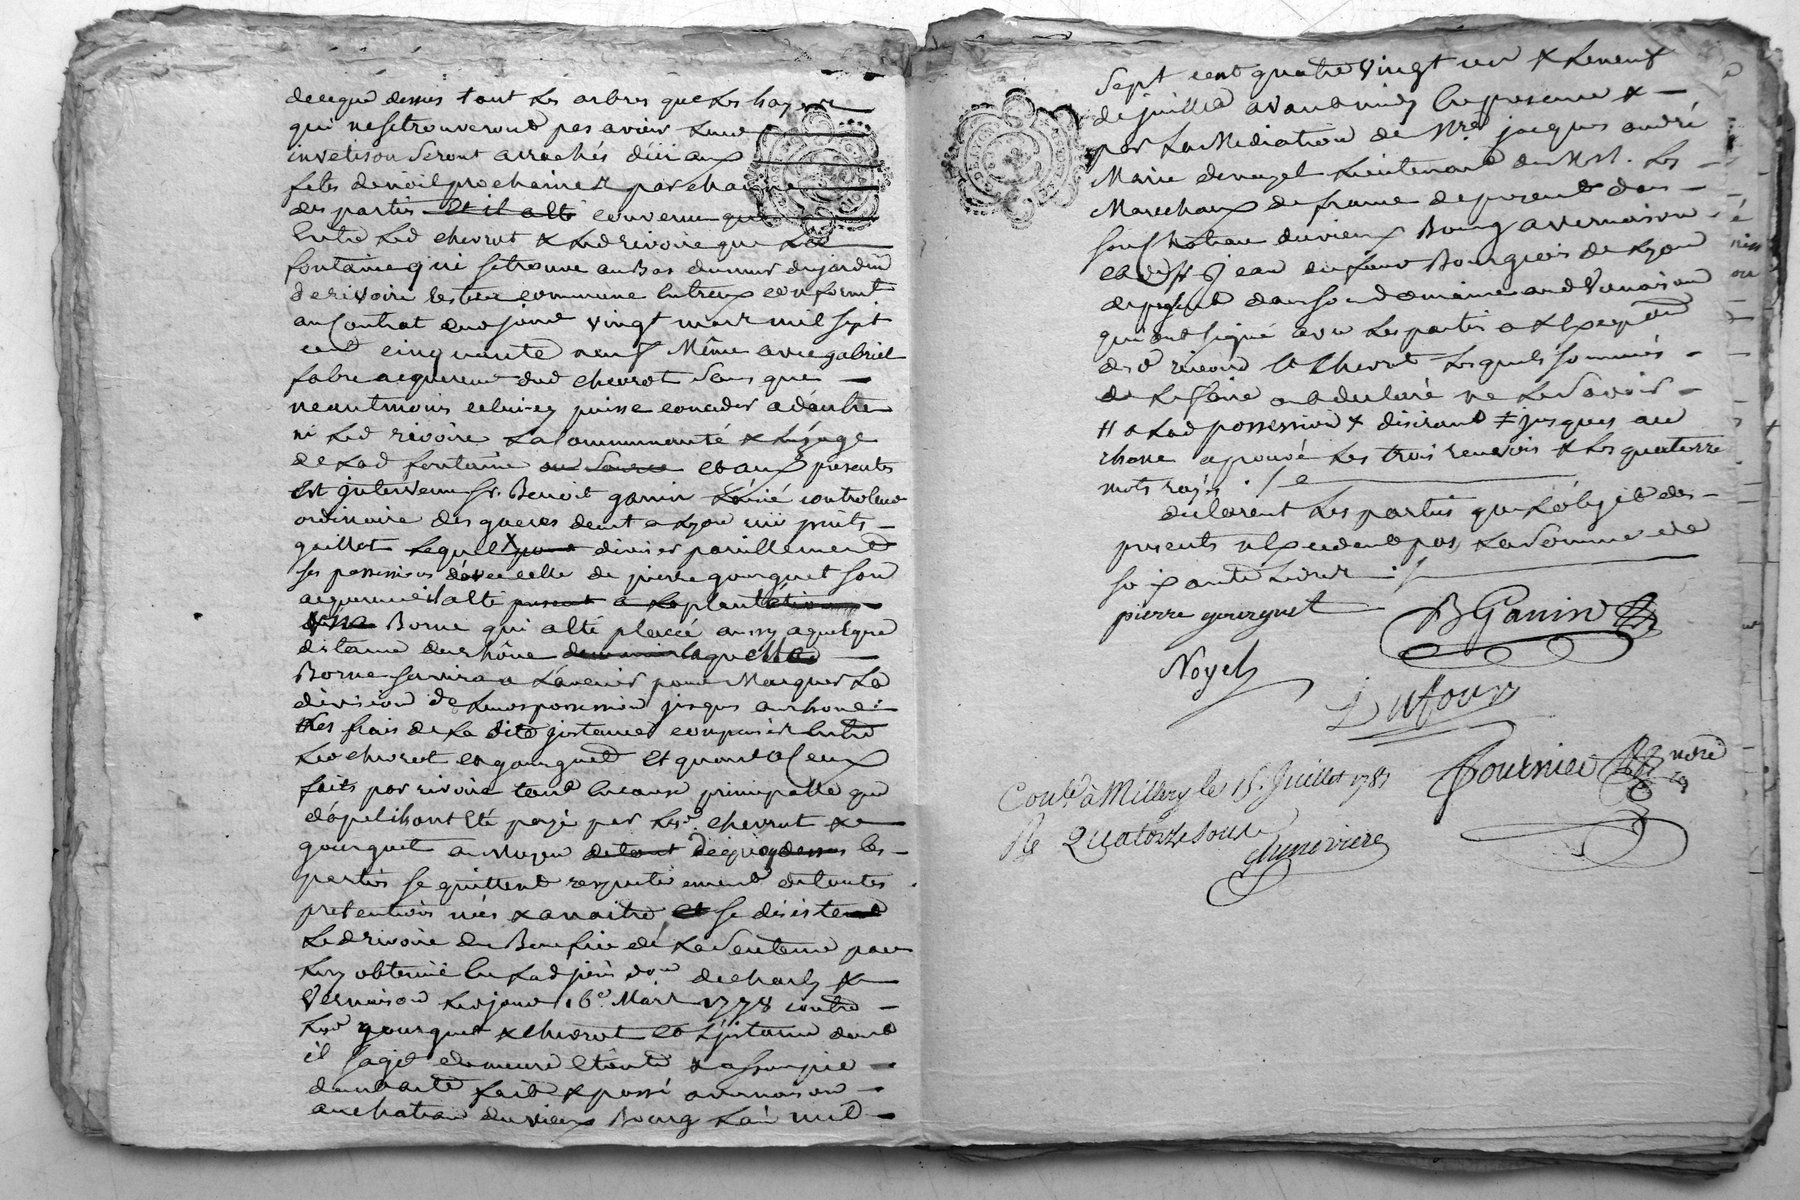 de ce que dessus tout les arbres que les hayes
qui ne se trouveront pas avoir leur
invetison seront arrachés d'ici aux
fetes de noël prochaines par chacune
des partis et il a eté convenu que
entre led chevrot & led rivoire que la
fontaine qui se trouve au bas du mur du jardin
de rivoire restera commune entreux conformt
au contrat du jour vingt mars mil sept
cent cinquante neuf Même avec gabriel
fabre acquereur dud chevrot sans que
neantmoins celuicy puisse conceder a d'autre
ni led rivoire la communauté & l'usage
de lad fontaine ou source et aux presentes
est intervenu sr. Benoit ganin controleur
ordinaire des guerres demt a Lyon rue puits
gaillot lequel pour diviser pareillement
ses possessions d'avec celle de pierre gourguet son
acquereur il a eté present a la plantation
d'une Borne qui a eté placée aussy a quelque
distance du rhône laquelle
Borne servira a l'avenir pour Marquer la
division de leurs possession jusques au rhone
les frais de la dite instance compensés entre
led chevrot et gourguet et quant a ceux
faits par rivoire tant en cause principalle que
d'apel ils ont eté payé par les. chevrot &
gourguet au moyen de tout de quoy dessus les
partis se quittent respectivement de toutes
pretentions nées & a naitre et se désistent
led rivoire du Benefice de la Sentence par
luy obtenue en lad juris.on de charly &
Vernaison le jour 16e. Mars 1778 contre
led gourguet & chevrot et l'instance dont
il sagit demeure eteinte & assoupie
dont acte fait & passé a vernaison
au chateau du vieux Bourg l'an mil
sept cent quatre vingt un & le neuf
de juillet avant midy en presence &
par la Mediation de Mre jacques andré
Marie denoyel Lieutenant de MM. les
Marechaux de france de present dans
son chateau du vieux Bourg a vernaison
et de sr jean dufour Bourgeois de Lyon
de present dans son domaine aud Vernaison
qui ont signé avec les partis a l'exception
des d rivoire et chevrot lesquels sommés
de le faire ont declaré ne le savoir
# a lad possession & disirant ≠ jusques au
rhone aprouvé les trois renvois & les quatorze
mots rayés
declarent les partis que l'objet des
presents n'excedent pas la somme de
soixante livres
pierre gourguet
B Ganin
Noyel
Dufour
Fournier notre
Conté à Millery le 15. Juillet 1781
Re Quatorze sous